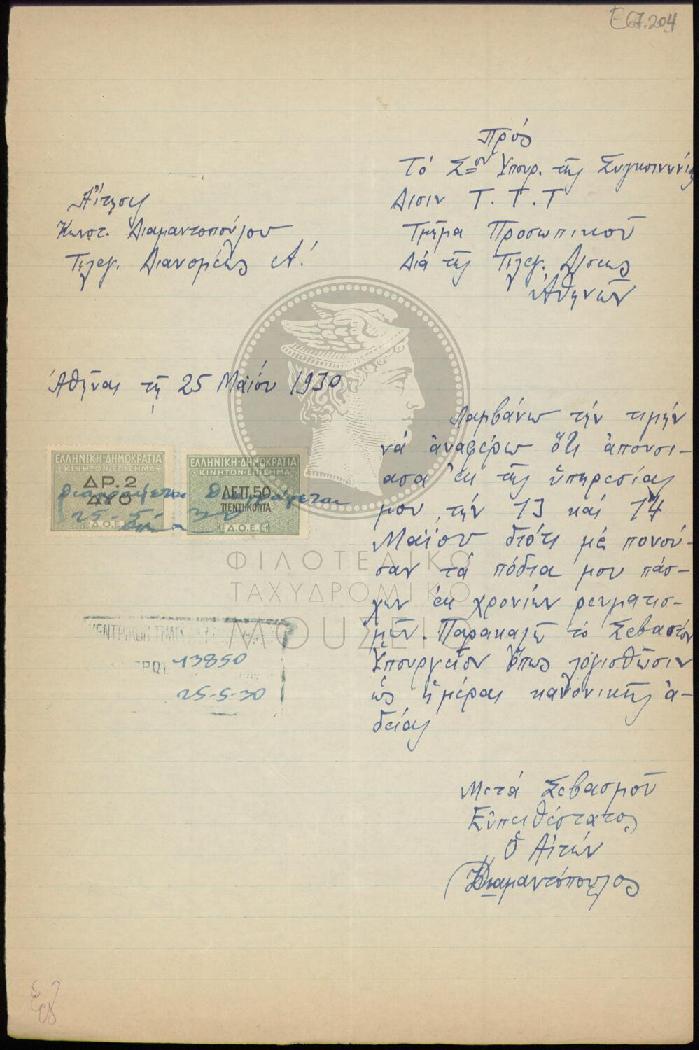 E67.204
Πρός
Τό Σον Υπουρ. τῆς Συγκοινωνίας
Δ/σιν Τ. Τ. Τ
Τμῆμα Προσωπικοῦ
Διά τῆς Τηλεγ. Δ/σεως
Ἀθηνῶν
Αἴτησις
Κωνστ. Διαμαντοπούλου
Τηλεγ. Διανομέως Α!
Ἀθῆναι τῇ 25 Μαΐου 1930
Λαμβάνω τήν τιμήν
νά ἀναφέρω ὅτι ἀπουσί-
ασα ἐκ τῆς ὑπηρεσίας
μου τήν 13 καί 14
Μαΐου διότι μέ πονοῦ-
σαν τά πόδια μου πάσ-
χων ἐκ χρονίων ρευματισ-
μῶν. Παρακαλῶ τό Σεβαστόν
Ὑπουργεῖον ὅπως λογισθῶσιν
ὡς ἡμέραι κανονικῆς ἀ-
δείας
Μετά Σεβασμοῦ
Εὐπειθέστατος
Ὁ Αἰτῶν
ΚΔιαμαντόπουλος
ΕΛΛΗΝΙΚΗ ΔΗΜΟΚΡΑΤΙΑ
ΚΙΝΗΤΟΝ ΕΠΙΣΗΜΑ
ΔΡ. 2
ΔΥΟ
Δ.Ο.Ε.
ΕΛΛΗΝΙΚΗ ΔΗΜΟΚΡΑΤΙΑ
ΚΙΝΗΤΟΝ ΕΠΙΣΗΜΑ
ΛΕΠ. 50
ΠΕΝΤΗΚΟΝΤΑ
Δ.Ο.Ε.
διαγράφεται
25-5-30
13850
25-5-30
ΦΙΛΟΤΕΛΙΚΟ
ΤΑΧΥΔΡΟΜΙΚΟ
ΜΟΥΣΕΙΟ